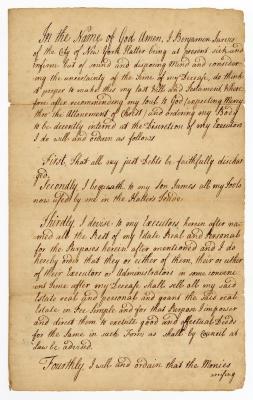 In the Name of God Amen, I Benjamin
of the City of New York Hatter being at present sick and
infirm but of sound and disposing Mind and consider-
ing the uncertainty of the Time of my Decease, do think
it proper to make this my last Will and Testament, where
fore after recommending my Soul to God (expecting Mercy
thro the Attonement of Christ) and ordering my Body
to be decently interred at the Discretion of my Executors
I do will and ordain as follows
First, That all my just Debts be faithfully dischar
ged.
Secondly I bequeath to my Son James all my Tools
now used by me in the Hatters Trade.
Thirdly, I devise to my Executors herein after na-
med all the Rest of my Estate Real and Personal
for the Purposes herein after mentioned and I do
hereby order that they or either of them, their or either
of their Executors or Administrators in some conveni
ent Time after my Decease shall sell all my said
Estate real and personal and grant the said real
Estate in Fee Simple and for that Purpose Impower
and direct them to execute good and effectual Deeds
for the Same in such Form as shall by Council at
Law be advised.
Fourthly, I will and ordain that the Monies
arising